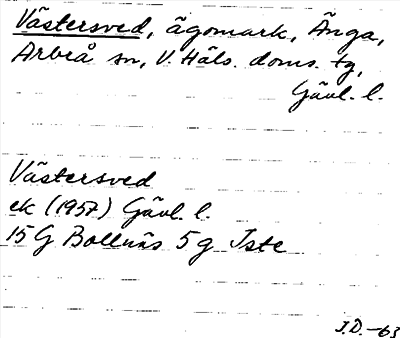 Västersved, ägomark, Änga,
Arbrå sn, V. Häls. doms. tg,
Gävl. l.
Västersved
ek (1957) Gävl. l.
15G Bollnäs 5g Iste
J.D. -63